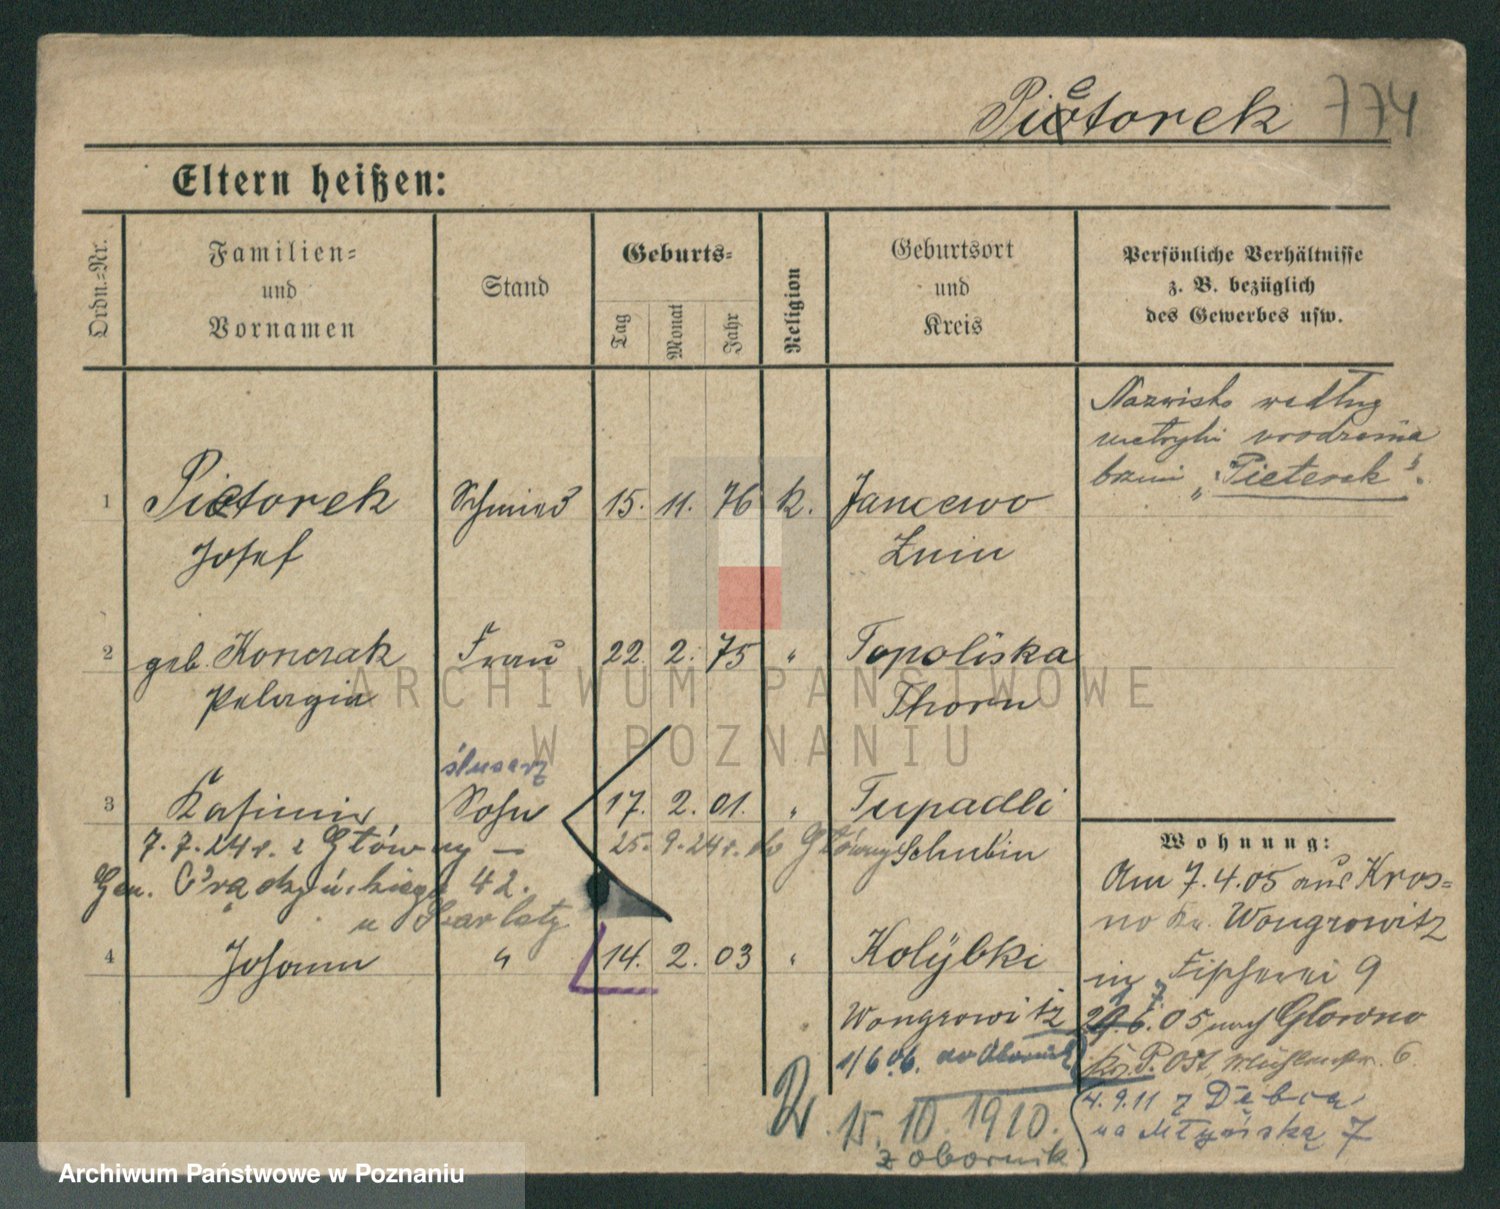 Pietorek 774
Eltern heißen:
Ordn.=Nr.
Familien=
und
Vornamen
Stand
Geburts=
Tag
Monat
Jahr
Religion
Geburtsort
und
Kreis
Persönliche Verhältnisse
z. B. bezüglich
des Gewerbes usw.
Nazwisko według
metryki urodzenia
brzmi „Pieterek".
1 Pietorek Schmied 15. 11. 76 k. Jancewo
Josef Znin
2 geb. Konczak Frau 22. 2. 75 " Topoliska
Pelagia Thorn
ślusarz
3 Kasimir Sohn 17. 2. 01. " Tupadli
7.7.24 r. z Główny — 25. 9. 24 r. do Główny Schubin
Gen. 42.
u
4 Johann " 14. 2. 03 " Kolÿbki
Wongrowitz
1/6 06. do Obornik
15. 10. 1910.
z Obornik
Wohnung:
Am 7.4.05 aus Kros=
no Kr. Wongrowitz
in Fischerei 9
6. 05 nach Glowno
Kr. P. Ost, 6
4.9.11 z Dębca
na Młyńską 7
ARCHIWUM PAŃSTWOWE
W POZNANIU
Archiwum Państwowe w Poznaniu